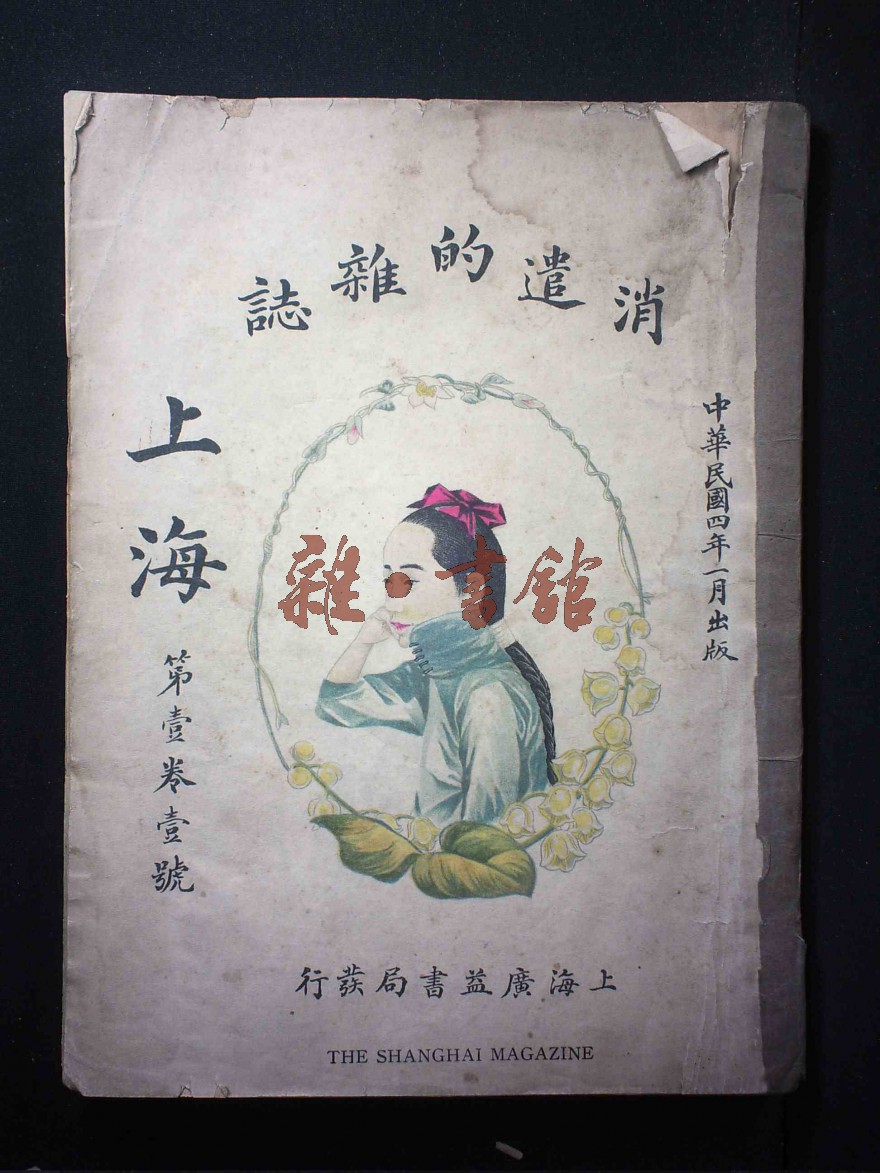 消遣的雜誌
中華民國四年一月出版
上海
第壹卷壹號
雜·書館
上海廣益書局發行
THE SHANGHAI MAGAZINE